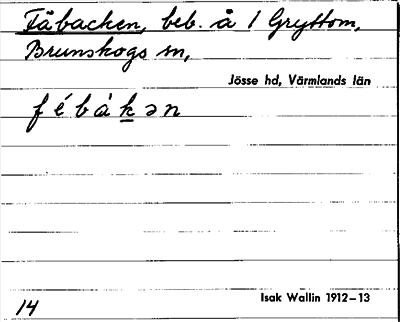 Fäbacken, beb. å 1 Gryttom,
Brunskogs sn,
Jösse hd, Värmlands län
fébàkən
Isak Wallin 1912–13
14